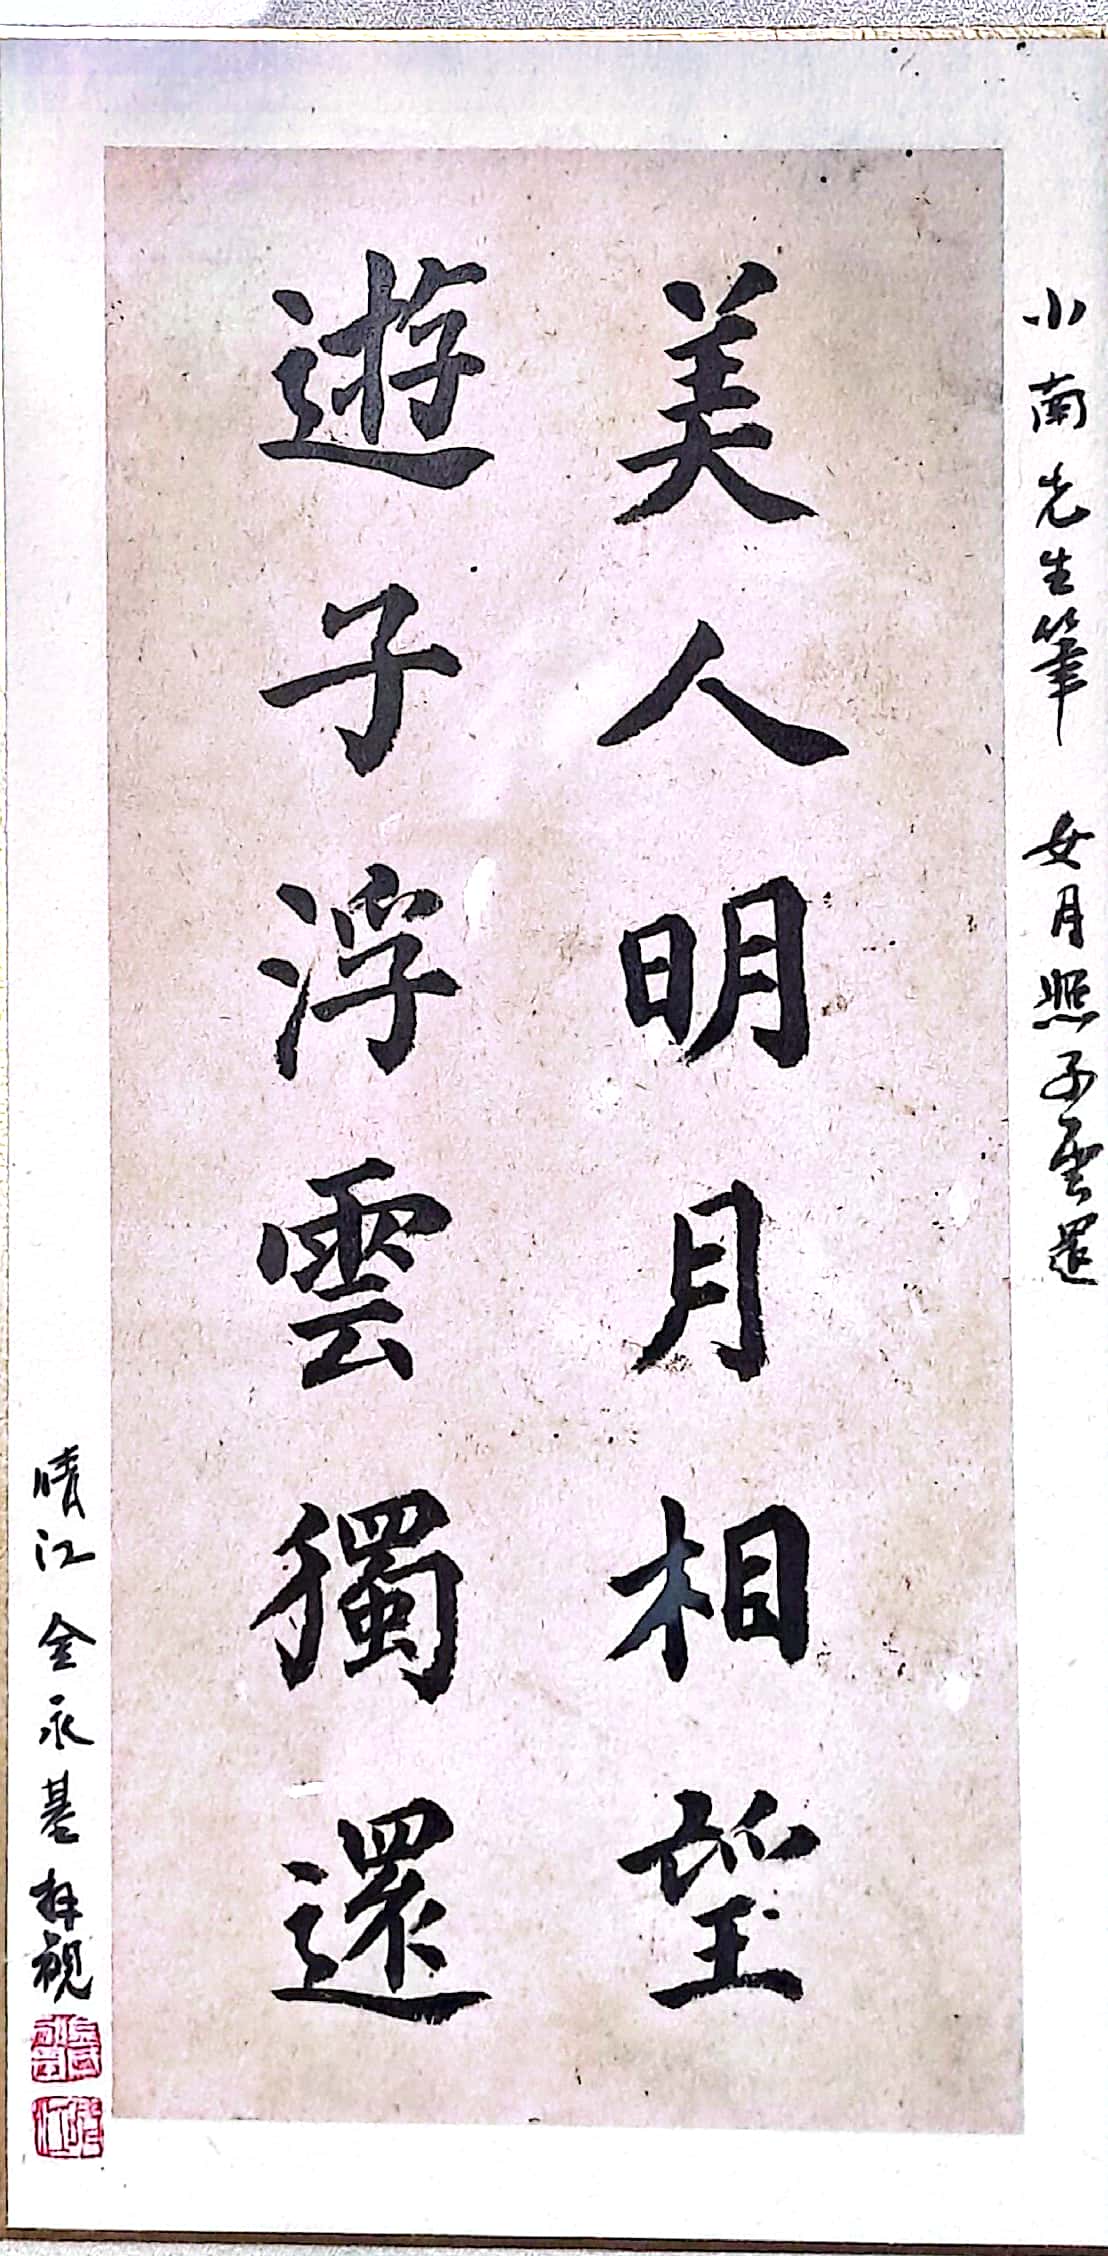 小南先生筆 女月照子雲還
美人明月相望
遊子浮雲獨還
晴江 金永基 拜觀